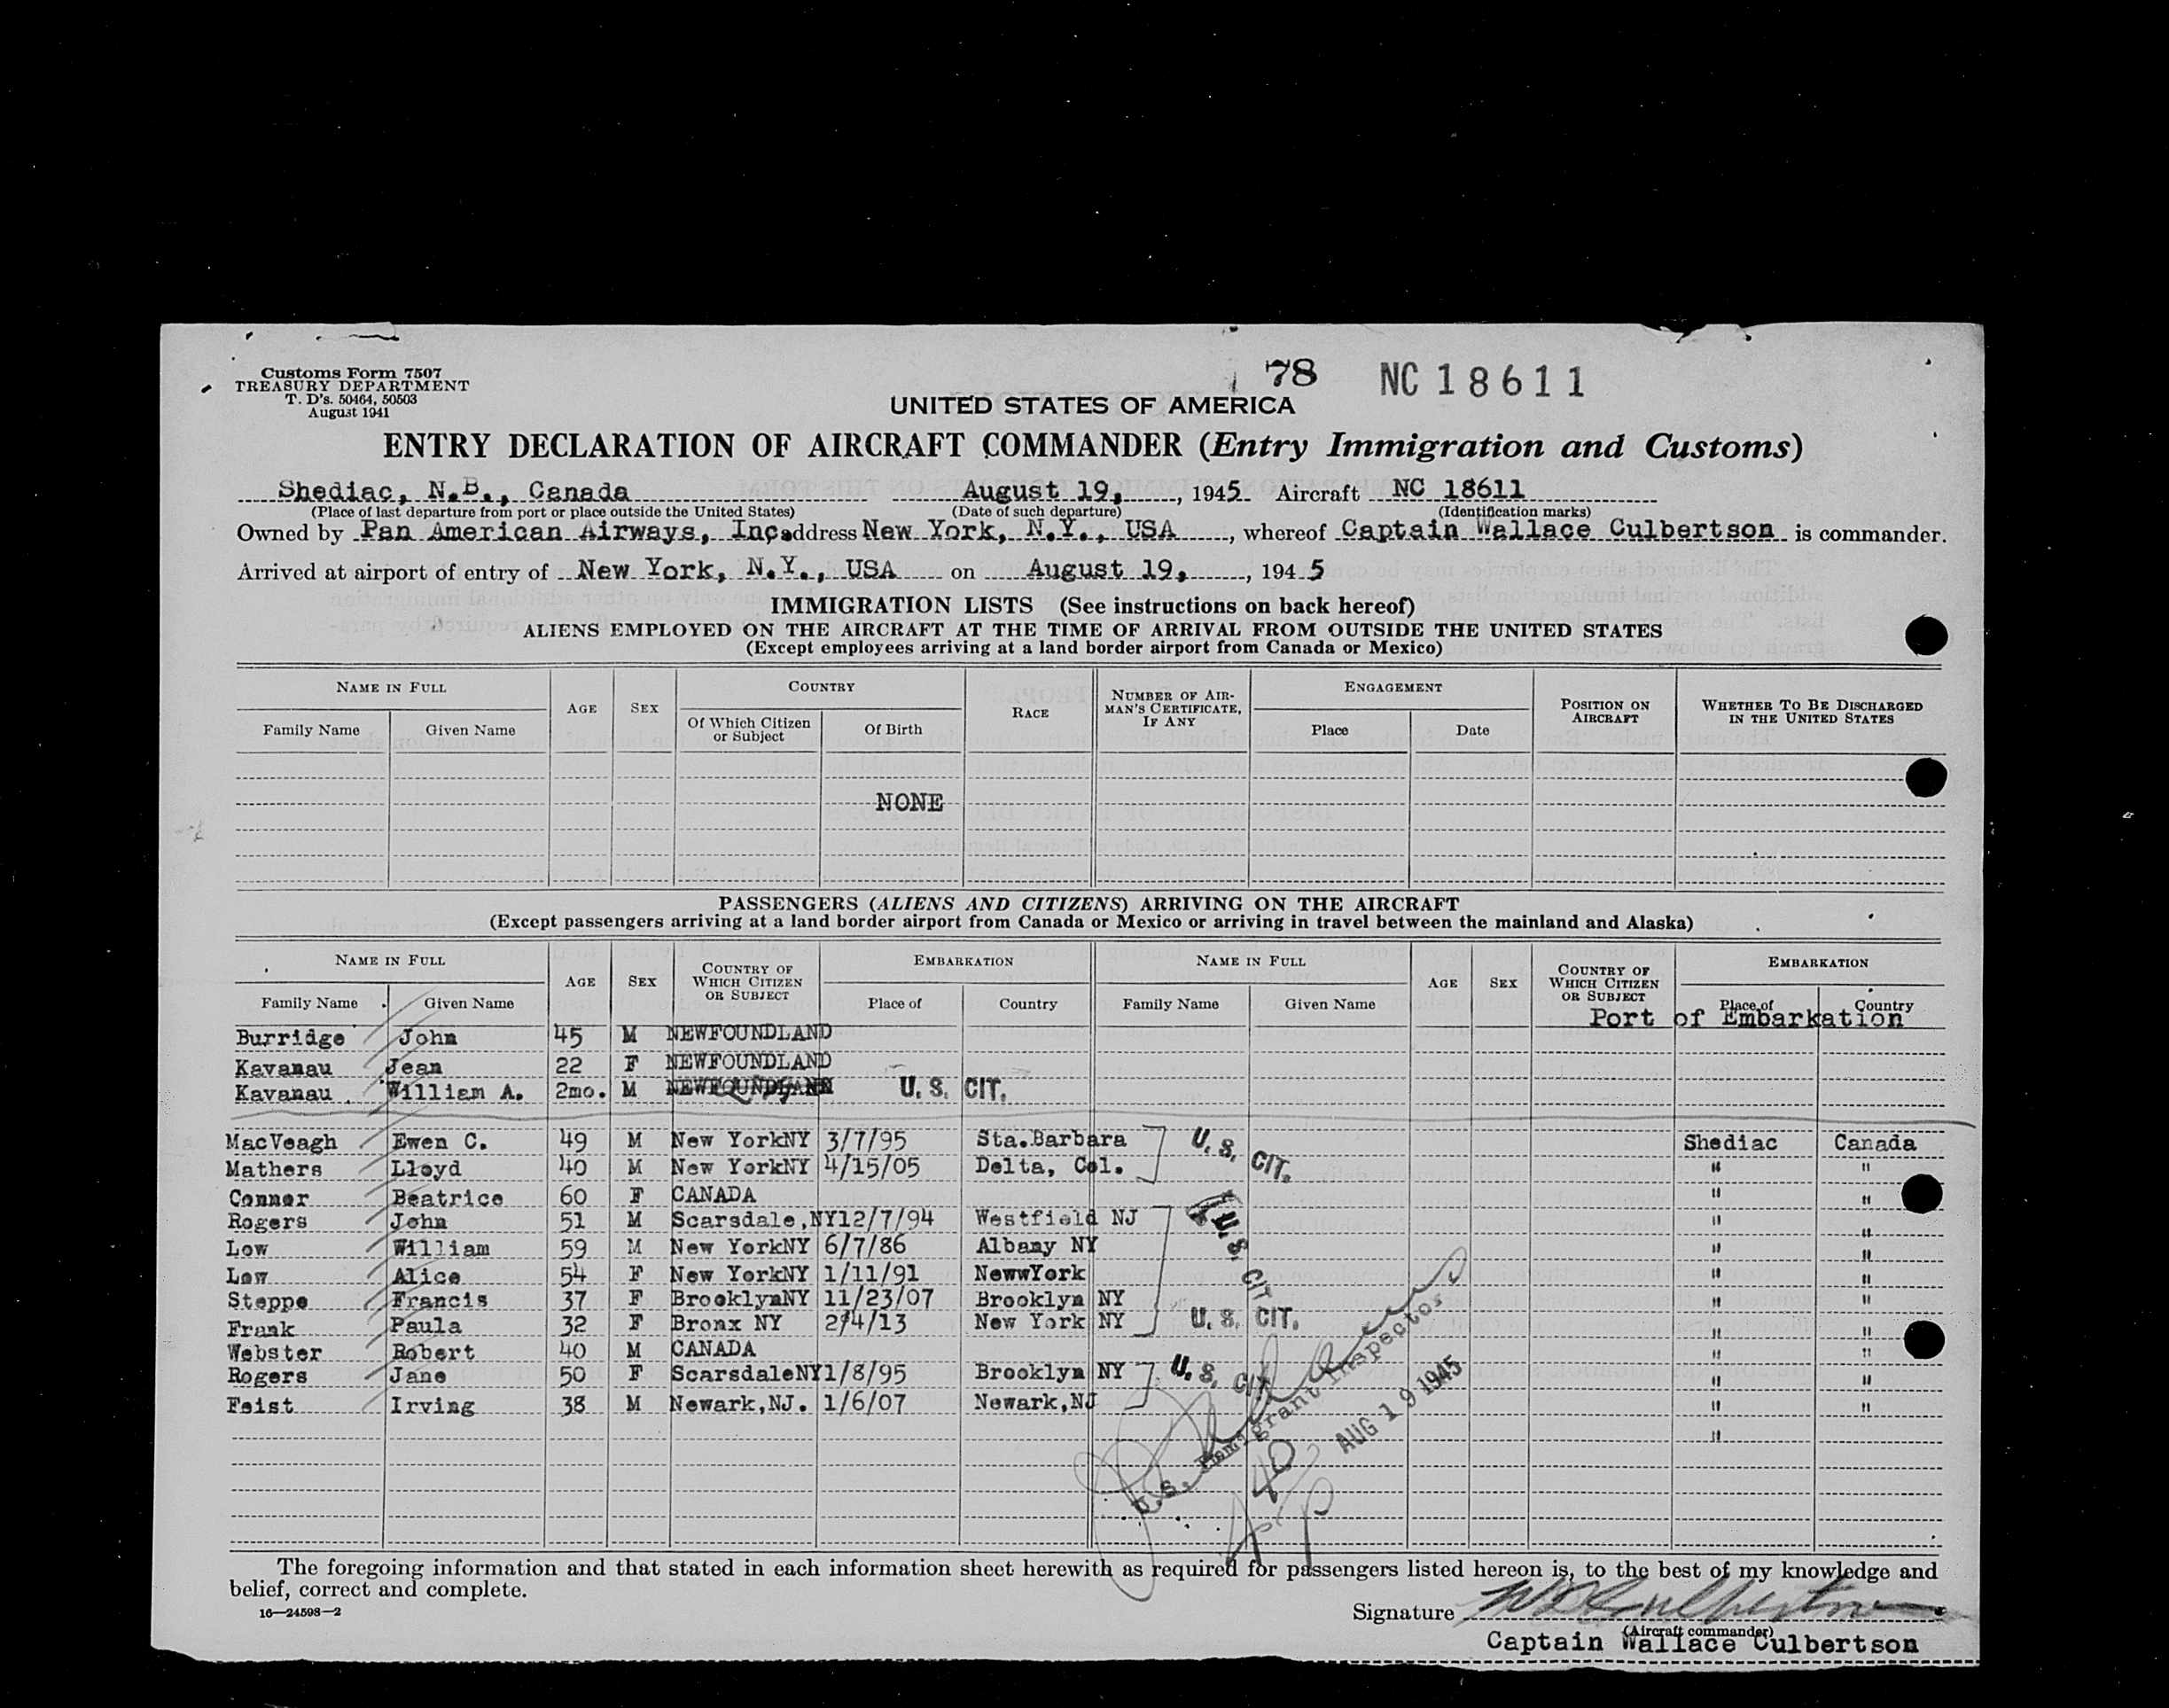 Customs Form 7507
TREASURY DEPARTMENT
T. D's. 50464, 50503
August 1941
78 NC 18611
UNITED STATES OF AMERICA
ENTRY DECLARATION OF AIRCRAFT COMMANDER (Entry Immigration and Customs)
Shediac, N.B., Canada August 19, , 1945 Aircraft NC 18611
(Place of last departure from port or place outside the United States) (Date of such departure) (Identification marks)
Owned by Pan American Airways, Inc address New York, N.Y., USA , whereof Captain Wallace Culbertson is commander.
Arrived at airport of entry of New York, N.Y., USA on August 19, , 1945
IMMIGRATION LISTS (See instructions on back hereof)
ALIENS EMPLOYED ON THE AIRCRAFT AT THE TIME OF ARRIVAL FROM OUTSIDE THE UNITED STATES
(Except employees arriving at a land border airport from Canada or Mexico)
NAME IN FULL AGE SEX COUNTRY RACE NUMBER OF AIRMAN'S CERTIFICATE, IF ANY ENGAGEMENT POSITION ON AIRCRAFT WHETHER TO BE DISCHARGED IN THE UNITED STATES
Family Name Given Name Of Which Citizen or Subject Of Birth Place Date
NONE
PASSENGERS (ALIENS AND CITIZENS) ARRIVING ON THE AIRCRAFT
(Except passengers arriving at a land border airport from Canada or Mexico or arriving in travel between the mainland and Alaska)
NAME IN FULL AGE SEX COUNTRY OF WHICH CITIZEN OR SUBJECT EMBARKATION NAME IN FULL AGE SEX COUNTRY OF WHICH CITIZEN OR SUBJECT EMBARKATION
Family Name Given Name Place of Country Family Name Given Name Place of Country
Port of Embarkation
Burridge John 45 M NEWFOUNDLAND
Kavanau Jean 22 F NEWFOUNDLAND
Kavanau William A. 2mo. M NEWFOUNDLAND U. S. CIT.
MacVeagh Ewen C. 49 M New YorkNY 3/7/95 Sta.Barbara U. S. CIT. Shediac Canada
Mathers Lloyd 40 M New YorkNY 4/15/05 Delta, Col. " "
Connor Beatrice 60 F CANADA " "
Rogers John 51 M Scarsdale,NY12/7/94 Westfield NJ U. S. CIT " "
Low William 59 M New YorkNY 6/7/86 Albany NY " "
Low Alice 54 F New YorkNY 1/11/91 NewwYork " "
Steppe Francis 37 F BrooklynNY 11/23/07 Brooklyn NY " "
Frank Paula 32 F Bronx NY 2/4/13 New York NY U. S. CIT. " "
Webster Robert 40 M CANADA " "
Rogers Jane 50 F ScarsdaleNY1/8/95 Brooklyn NY U. S. CIT " "
Feist Irving 38 M Newark,NJ. 1/6/07 Newark,NJ " "
"
U. S. Immigrant Inspector
AUG 19 1945
The foregoing information and that stated in each information sheet herewith as required for passengers listed hereon is, to the best of my knowledge and
belief, correct and complete.
16—24598—2
Signature W Culbertson
(Aircraft commander)
Captain Wallace Culbertson